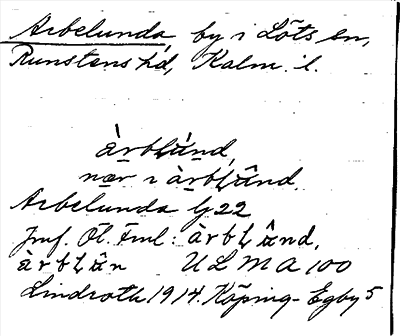 Arbelunda, by i Löts sn,
Runstens hd, Kalm. l.
àrblúnd,
nær i àrblûnd.
Arbelunda by 22
Jmf. Öl. Fml: àrblûnd,
àrblûn ULMA 100
Lindroth 1914. Köping-Egby 5